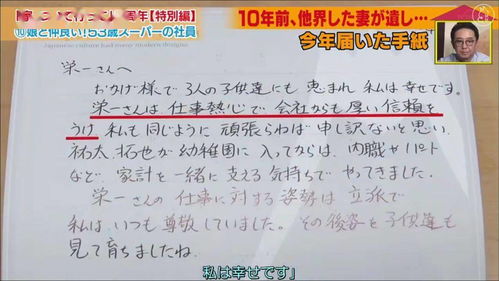 10年前、他界した妻が遺し…
今年届いた手紙
⑩娘と仲良い!53歳スーパーの社員
栄一さんへ
おかげ様で3人の子供達にも恵まれ 私は幸せです。
栄一さんは 仕事熱心で 会社からも厚い信頼を
うけ 私も同じように頑張らねば申し訳ないと思い、
祐太、拓也が幼稚園に入ってからは、内職やパート
など、家計を一緒に支える気持ちでやってきました。
栄一さんの 仕事に対する姿勢は 立派で
私は いつも尊敬していました。その後姿を子供達も
見て育ちましたね。
私は幸せです」